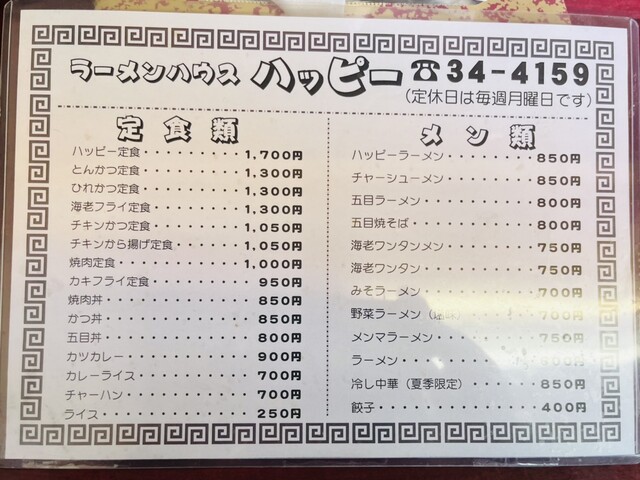 ラーメンハウス ハッピー ☎34-4159
(定休日は毎週月曜日です)
定食類
ハッピー定食・・・・・・・・・・1,700円
とんかつ定食・・・・・・・・・・1,300円
ひれかつ定食・・・・・・・・・・1,300円
海老フライ定食・・・・・・・・・1,300円
チキンかつ定食・・・・・・・・・1,050円
チキンから揚げ定食・・・・・・・1,050円
焼肉定食・・・・・・・・・・・・1,000円
カキフライ定食・・・・・・・・・950円
焼肉丼・・・・・・・・・・・・・850円
かつ丼・・・・・・・・・・・・・850円
五目丼・・・・・・・・・・・・・800円
カツカレー・・・・・・・・・・・900円
カレーライス・・・・・・・・・・700円
チャーハン・・・・・・・・・・・700円
ライス・・・・・・・・・・・・・250円
メン類
ハッピーラーメン・・・・・・・・850円
チャーシューメン・・・・・・・・850円
五目ラーメン・・・・・・・・・・800円
五目焼そば・・・・・・・・・・・800円
海老ワンタンメン・・・・・・・・750円
海老ワンタン・・・・・・・・・・750円
みそラーメン・・・・・・・・・・700円
野菜ラーメン・・・・・700円
メンマラーメン・・・・・・・・・750円
ラーメン・・・・・・・・・・・・円
冷し中華(夏季限定)・・・・・・850円
餃子・・・・・・・・・・・・・・400円